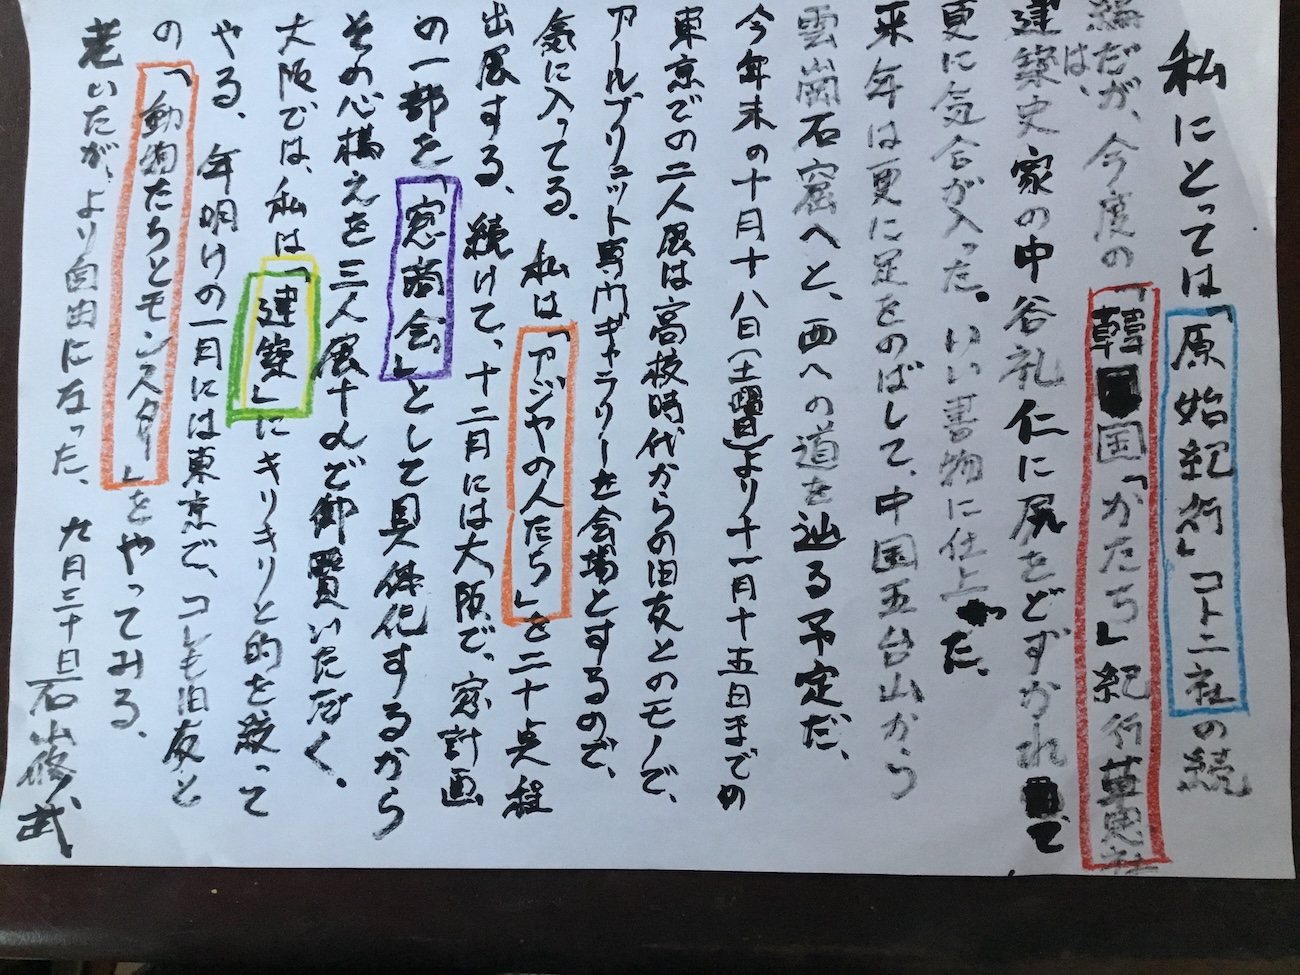 私にとっては「原始紀行」コトニ社の続
編だが、今度の「韓国「かたち」紀行草思社
は、
建築史家の中谷礼仁に尻をどずかれて
更に気合が入った。いい書物に仕上った。
来年は更に足をのばして、中国五台山から
雲崗石窟へと、西への道を辿る予定だ、
今年末の十月十八日(土曜日)より十一月十五日までの
東京での二人展は高校時代からの旧友とのモノで、
アールブリュット専門ギャラリーを会場とするので、
気に入ってる、私は「アジヤの人たち」を二十点程
出展する、続けて、十二月には大阪で、窓計画
の一部を「窓商会」として具体化するから
その心構えを三人展十人で御覧いただく。
大阪では、私は「建築」にキリキリと的を絞って
やる、年明けの一月には東京で、コレも旧友と
の「動物たちとモンスター」をやってみる、
老いたが、より自由になった、九月三十日石山修武